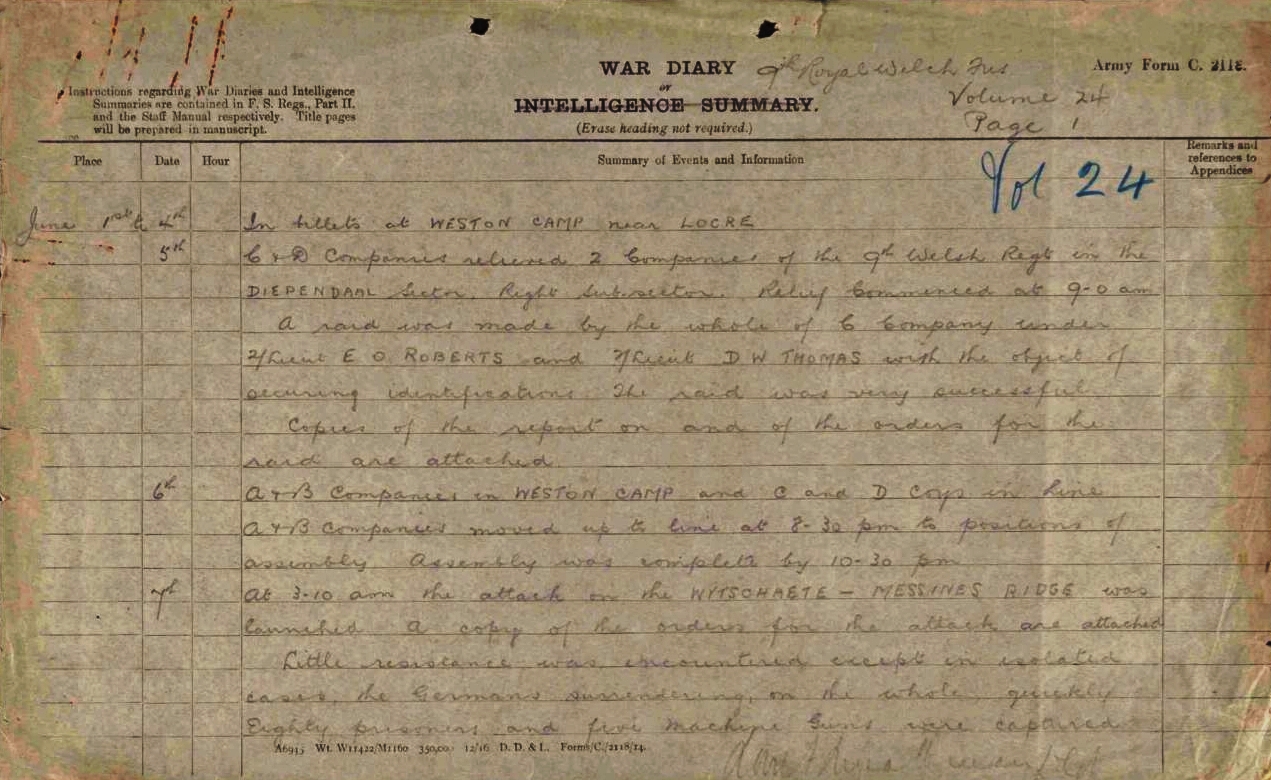 WAR DIARY 9th Royal Welch Fus
Army Form C. 2118.
or
INTELLIGENCE SUMMARY.
(Erase heading not required.)
Volume 24
Page 1
Instructions regarding War Diaries and Intelligence
Summaries are contained in F. S. Regs., Part II.
and the Staff Manual respectively. Title pages
will be prepared in manuscript.
Place Date Hour Summary of Events and Information Remarks and references to Appendices
Vol 24
June 1st to 4th In billets at WESTON CAMP near LOCRE
5th C & D Companies relieved 2 Companies of the 9th Welsh Regt in the
DIEPENDAAL Sector. Right Subsector. Relief Commenced at 9-0 am
A raid was made by the whole of C Company under
2/Lieut E O ROBERTS and 2/Lieut D W THOMAS with the object of
securing identifications. The raid was very successful.
Copies of the report on and of the orders for the
raid are attached
6th A & B Companies in WESTON CAMP and C and D Coys in Line
A & B Companies moved up to line at 8-30 pm to positions of
assembly Assembly was complete by 10-30 pm
7th At 3-10 am the attack on the WYTSCHAETE - MESSINES RIDGE was
launched. A copy of the orders for the attack are attached
Little resistance was encountered except in isolated
cases, the Germans surrendering, on the whole, quickly
Eighty prisoners and five Machine Guns were captured
A6945 Wt. W11422/M1160 350,000 12/16 D. D. & L. Forms/C./2118/14.